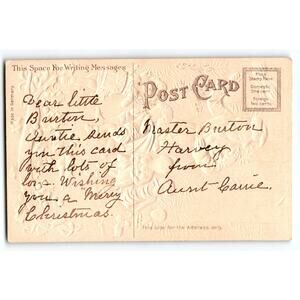 This Space For Writing Messages
POST CARD
Place
Stamp Here
Domestic
One cent
Foreign
two cents
Made in Germany
Dear little
Burton,
Auntie sends
you this card
with lots of
love. Wishing
you a Merry
Christmas.
Master Burton
Harvey
from
Aunt Carrie.
This side for the Address only.